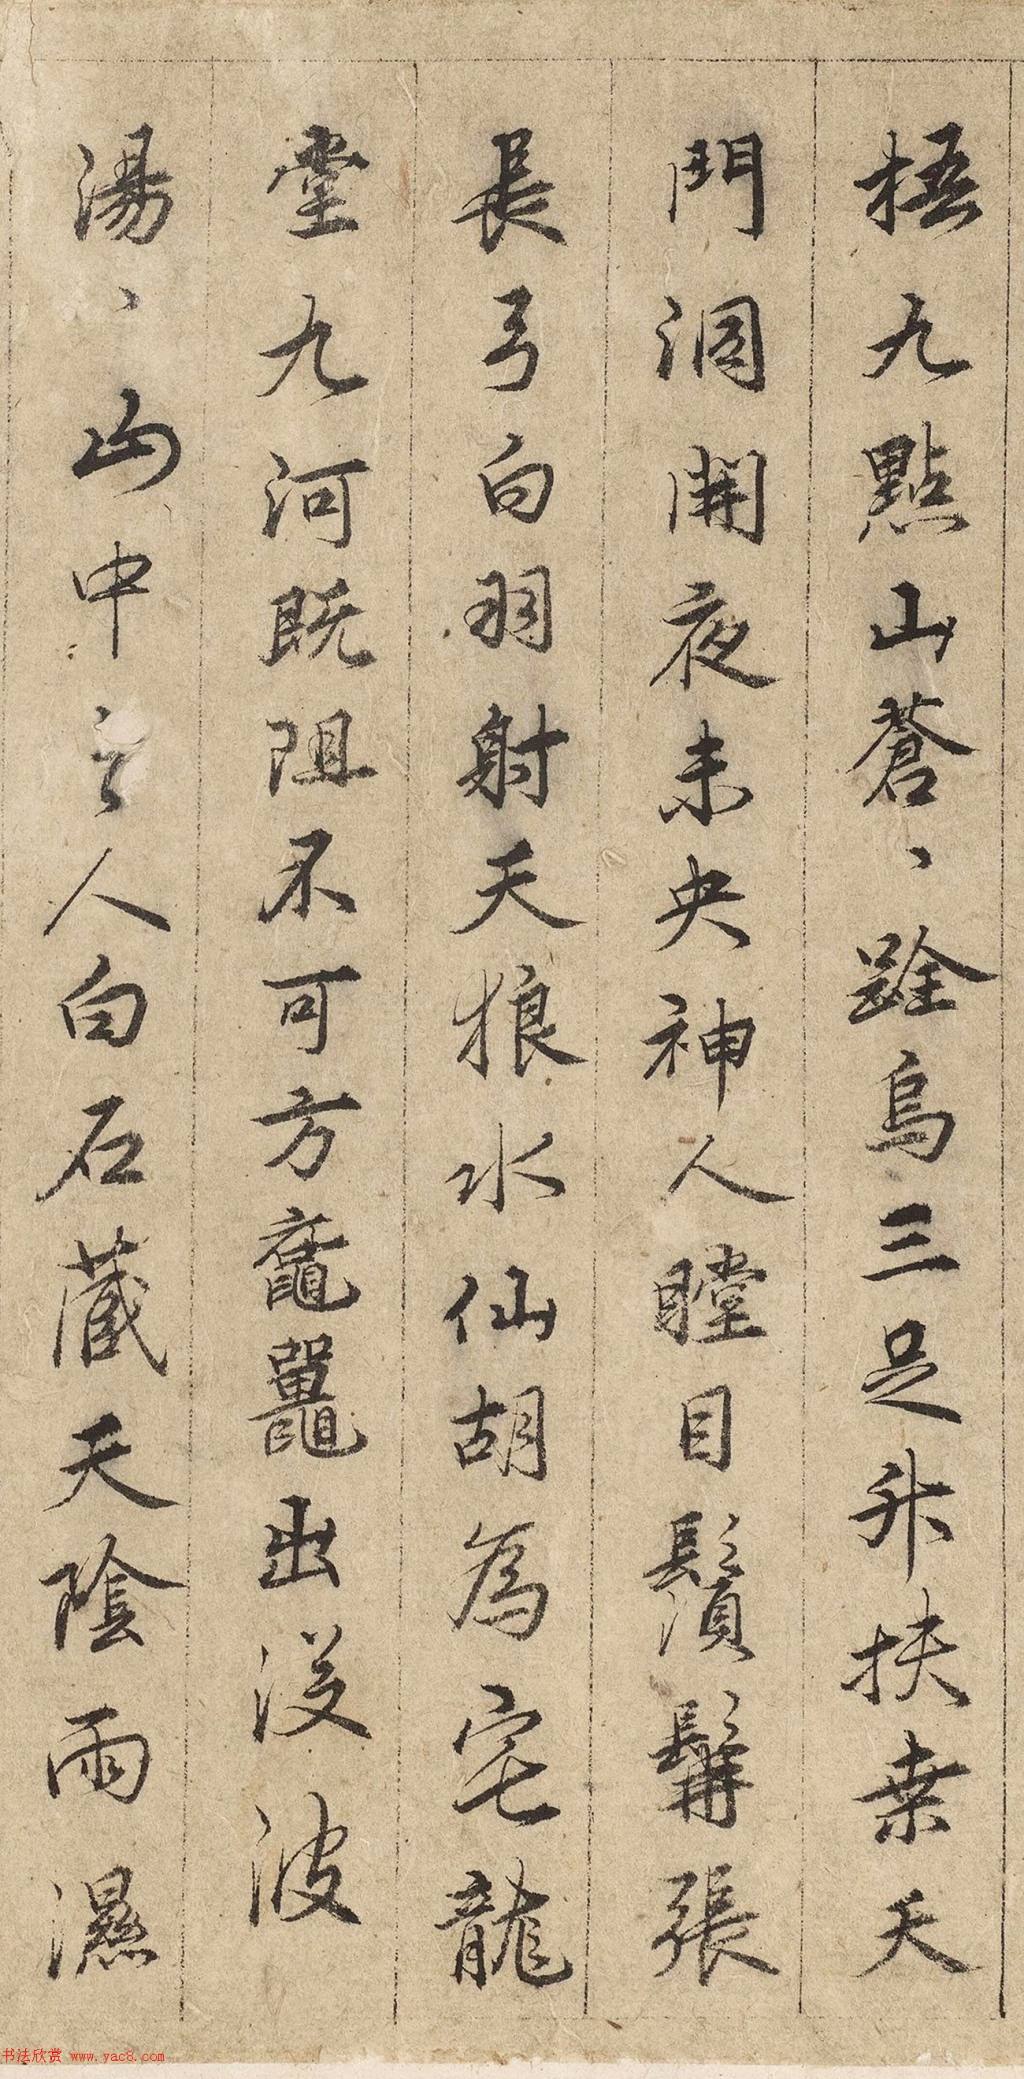 梧九點山蒼、跧烏三足升扶桒天
門洞開夜未央神人瞠目鬚髯張
長弓白羽射天狼水仙胡為宅龍
堂九河既阻不可方鼋鼉出没波
湯、山中之人白石藏天陰雨濕
书法欣赏 www.yac8.com